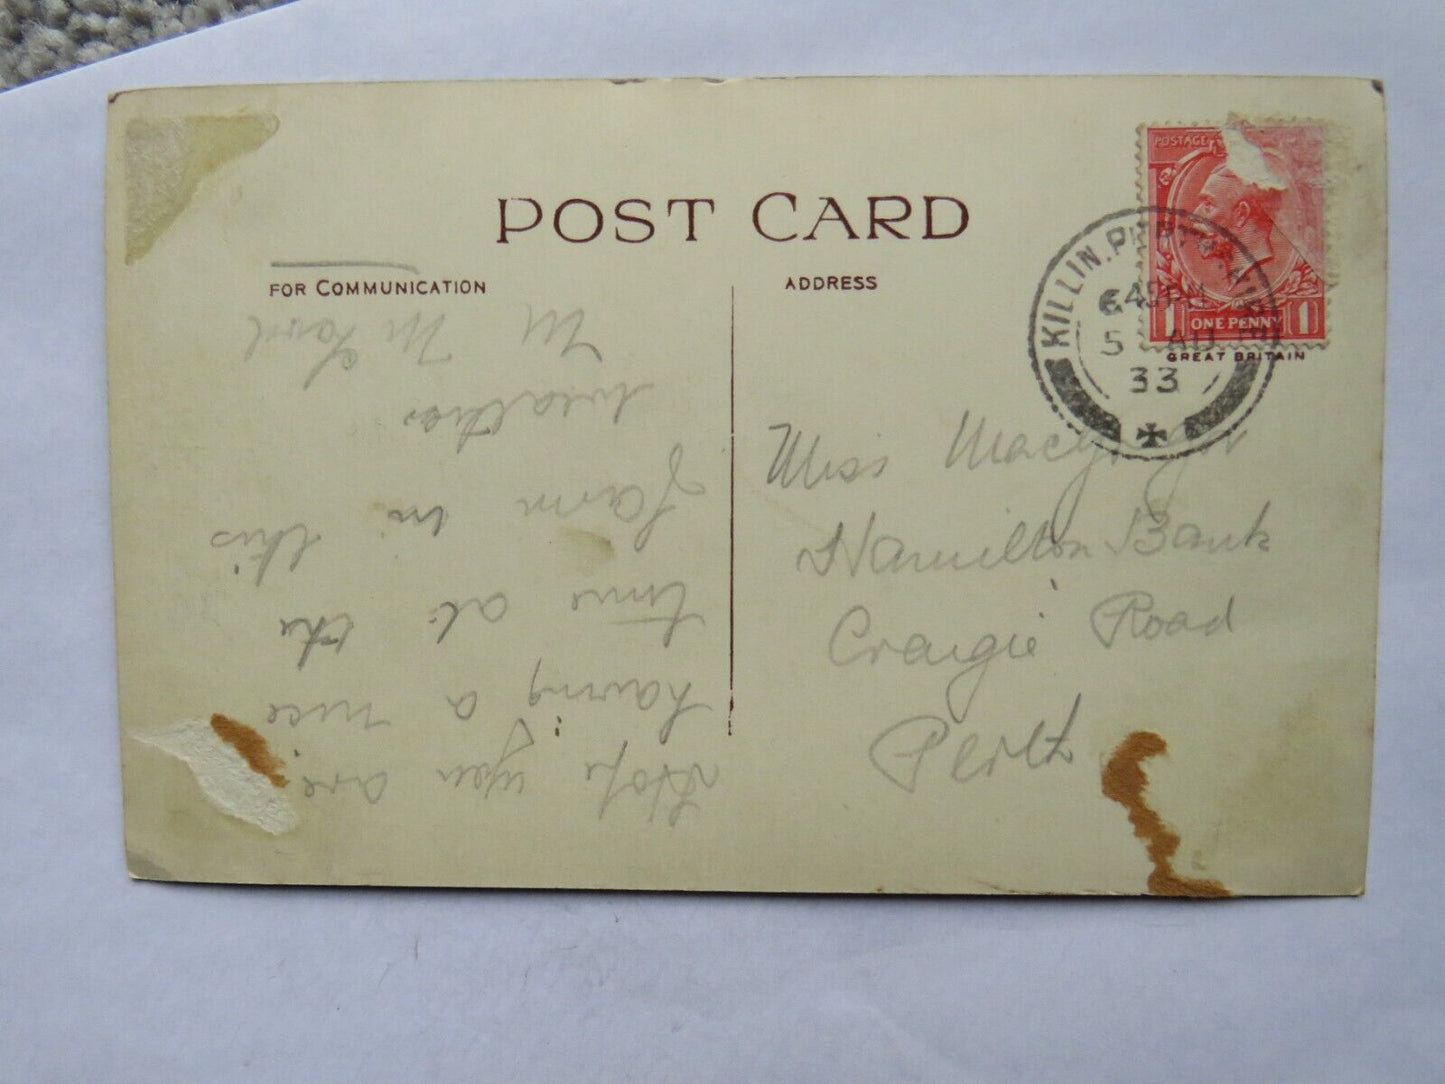 POST CARD
FOR COMMUNICATION
ADDRESS
POSTAGE
1 ONE PENNY 1
GREAT BRITAIN
KILLIN. PERTHSHIRE
6 45 PM
5 AU
33
Miss Macgregor
Hamilton Bank
Craigie Road
Perth
Hope you are
having a nice
time at the
farm in this
weather
M